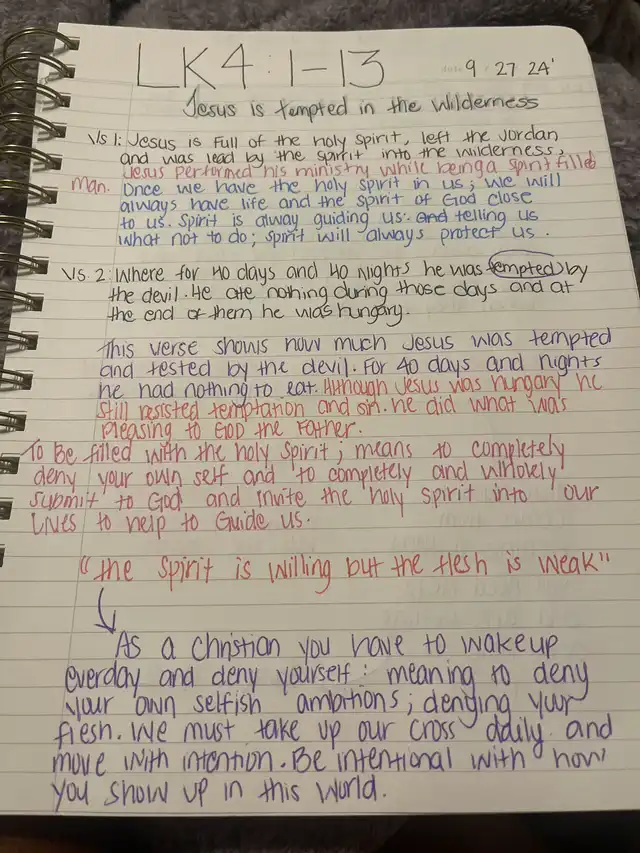 LK4:1-13
9 27 24'
Jesus is tempted in the wilderness
Vs 1: Jesus is full of the holy spirit, left the Jordan
and was lead by the spirit into the wilderness,
Jesus performed his ministry while being a spirit filled
man. Once we have the holy spirit in us; we will
always have life and the spirit of God close
to us. Spirit is alway guiding us. and telling us
what not to do; spirit will always protect us.
Vs. 2: Where for 40 days and 40 Nights he was tempted by
the devil. He ate nothing during those days and at
the end of them he was hungary.
This verse shows how much Jesus was tempted
and tested by the devil. For 40 days and nights
he had nothing to eat. Although Jesus was hungary he
still resisted temptation and sin. he did what was
pleasing to GOD the Father.
To Be filled with the holy Spirit; means to completely
deny your own self and to completely and wholely
submit to God and invite the holy spirit into our
lives to help to Guide us.
"the Spirit is willing but the flesh is weak"
As a christian you have to wakeup
everday and deny yourself: meaning to deny
your own selfish ambitions; denying your
flesh. We must take up our cross daily and
move with intention. Be intentional with how
you show up in this world.